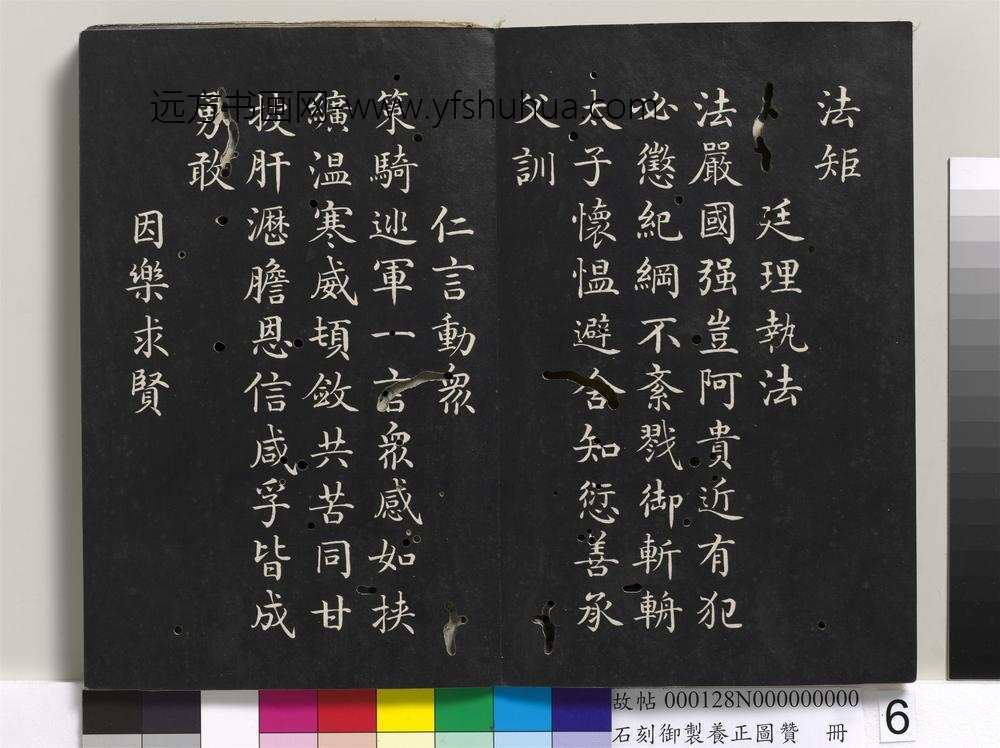 法矩
廷理執法
法嚴國强豈阿貴近有犯
必懲紀綱不紊戮御斬輈
太子懷愠避舍知愆善承
父訓
仁言動衆
策騎巡軍一言衆感如挾
纊温寒威頓斂共苦同甘
披肝瀝膽恩信咸孚皆成
勇敢
因樂求賢
远方书画网:www.yfshuhua.com
故帖 000128N000000000
石刻御製養正圖贊 冊
6